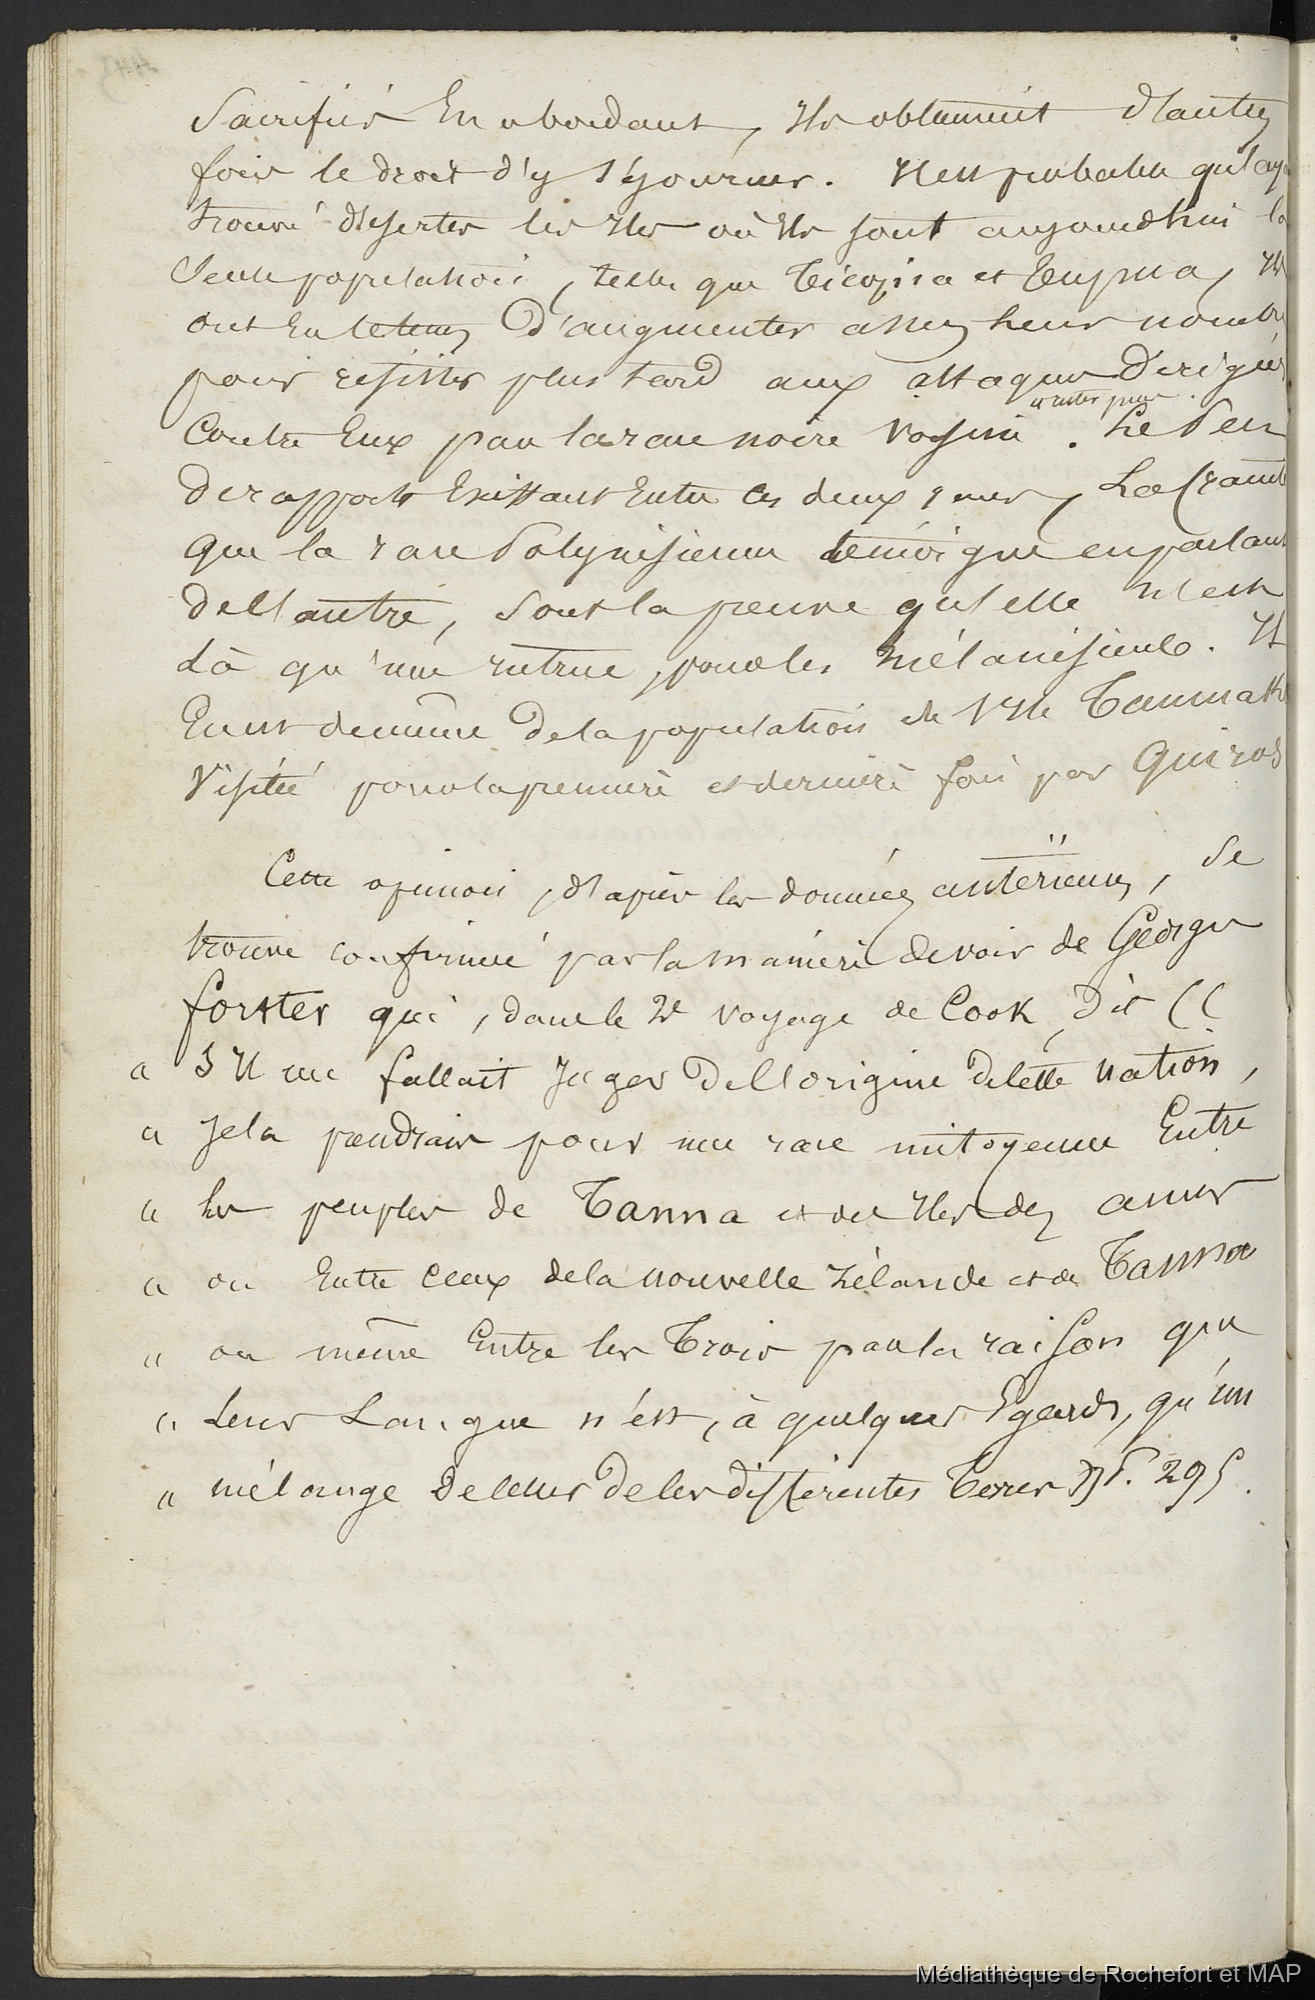 sacrifiés En abordant, Ils obtinrent d'autres
fois le droit d'y séjourner. Il est probable qu'ay
trouvé désertes les Iles où Ils sont aujourd'hui la
Seule population, telle que Ticopia et Tupua, Ils
ont Eu le tems D'augmenter assez heur nombre
pour résister plus tard aux attaques Dirigées
Contre Eux par la race noire Voisine. Le Peu
De rapports Existant Entre ces deux races, La crainte
Que la race Polynésienne témoigne en parlant
De l'autre, Sont la preuve qu'elle n'est
Là qu'une intruse, pour les Mélanésiens. Il
En est de même De la population de l'Ile Taumako
Visitée pour la première et dernière fois par Quiros
Cette opinion, d'après les données antérieures, Se
trouve confirmée par la manière de voir de George
forster qui, dans le 2e voyage de Cook, Dit ((
" S'Il me fallait Juger De l'origine De cette Nation,
" Je la prendrais pour une race mitoyenne Entre
" les peuples de Tanna et des Iles des amis
" ou Entre Ceux de la Nouvelle Zélande et de Tanna
" ou même Entre les Trois par la raison que
" Leur Langue n'est, à quelques Egards, qu'un
" mélange De celles De ces différentes Terres )) P. 295.
Médiathèque de Rochefort et MAP